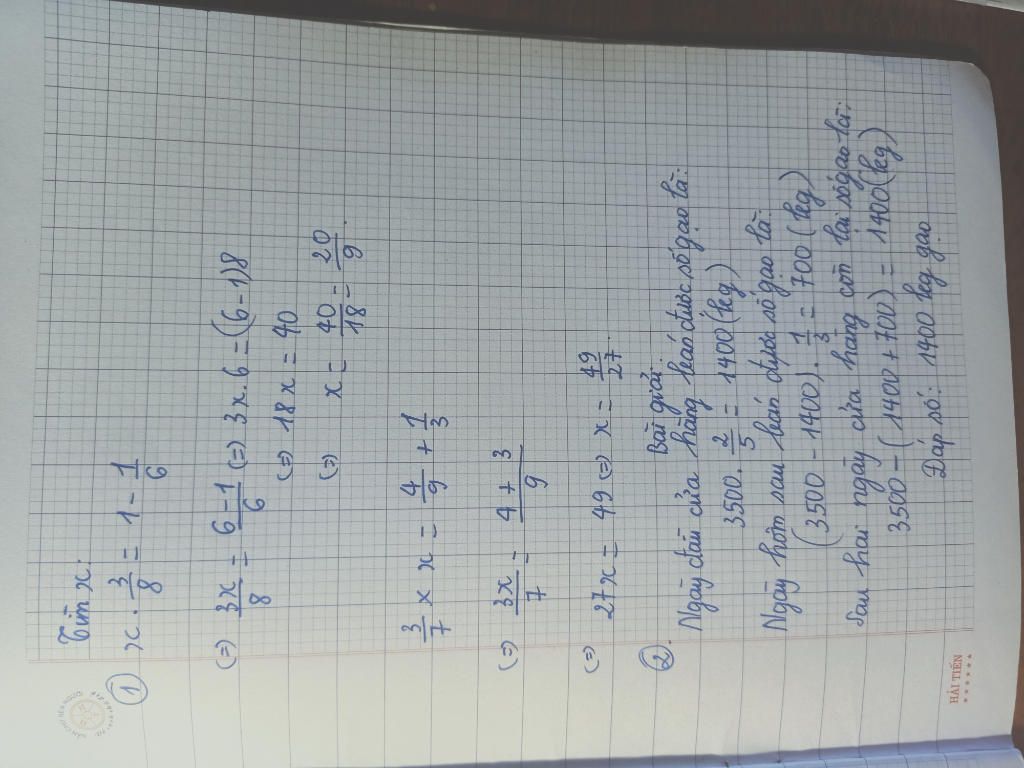 Tìm x:
① x . 3/8 = 1 - 1/6
(=) 3x/8 = 6-1/6 (=) 3x.6 = (6-1)8
(=) 18x = 40
(=) x = 40/18 = 20/9.
3/7 x x = 4/9 + 1/3
(=) 3x/7 = 4+3/9
(=) 27x = 49 (=) x = 49/27.
② Bài giải:
Ngày đầu cửa hàng bán được số gạo là:
3500 . 2/5 = 1400 (kg)
Ngày hôm sau bán được số gạo là:
(3500 - 1400) . 1/3 = 700 (kg)
Sau hai ngày cửa hàng còn lại số gạo là:
3500 - (1400 + 700) = 1400 (kg)
Đáp số: 1400 kg gạo
HẢI TIẾN